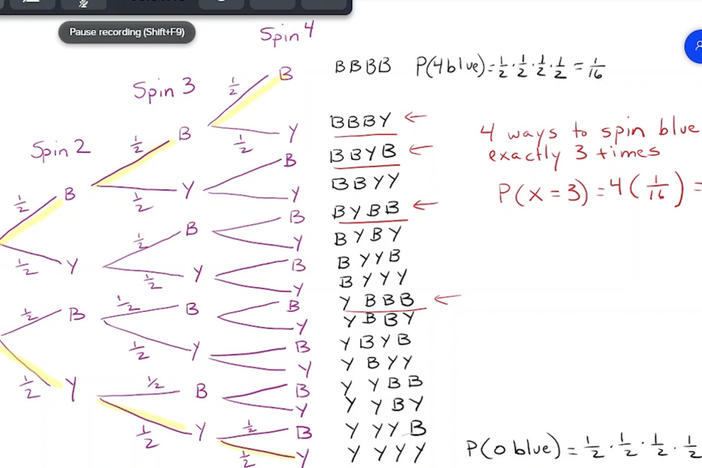 Pause recording (Shift+F9)
Spin 4
Spin 3
Spin 2
1/2 B
1/2 Y
1/2 B
1/2 Y
1/2 B
1/2 Y
B
Y
1/2 B
1/2 Y
B
Y
B
Y
1/2 B
1/2 Y
1/2 B
1/2 Y
B
Y
B
Y
1/2 B
1/2 Y
B
Y
1/2 B
1/2 Y
BBBB P(4 blue) = 1/2 · 1/2 · 1/2 · 1/2 = 1/16
BBBY ←
BBYB ←
BBYY
BYBB ←
BYBY
BYYB
BYYY
YBBB ←
YBBY
YBYB
YBYY
YYBB
YYBY
YYYB
YYYY
4 ways to spin blue
exactly 3 times
P(X = 3) = 4(1/16) =
P(0 blue) = 1/2 · 1/2 · 1/2 · 1/2